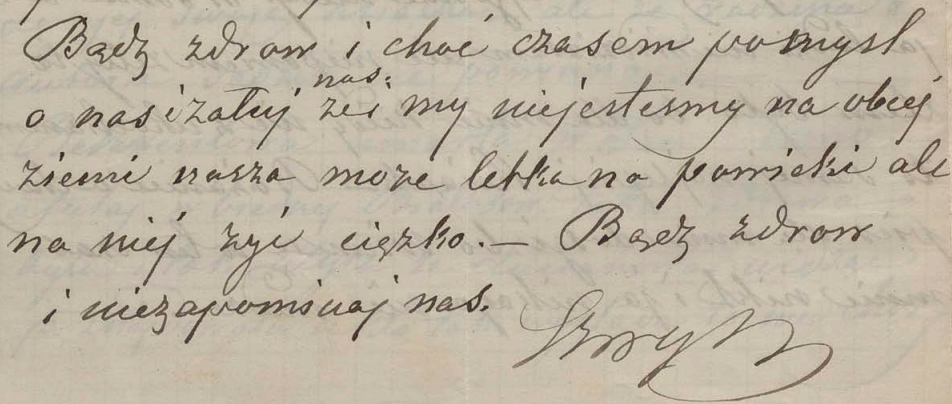 Bądz zdrow i choć czasem pomysl
nas.
o nas i załuj ze i my niejestesmy na obcej
ziemi nasza może letka na powieki ale
na niej żyć ciężko. — Bądz zdrow
i niezapominaj nas.